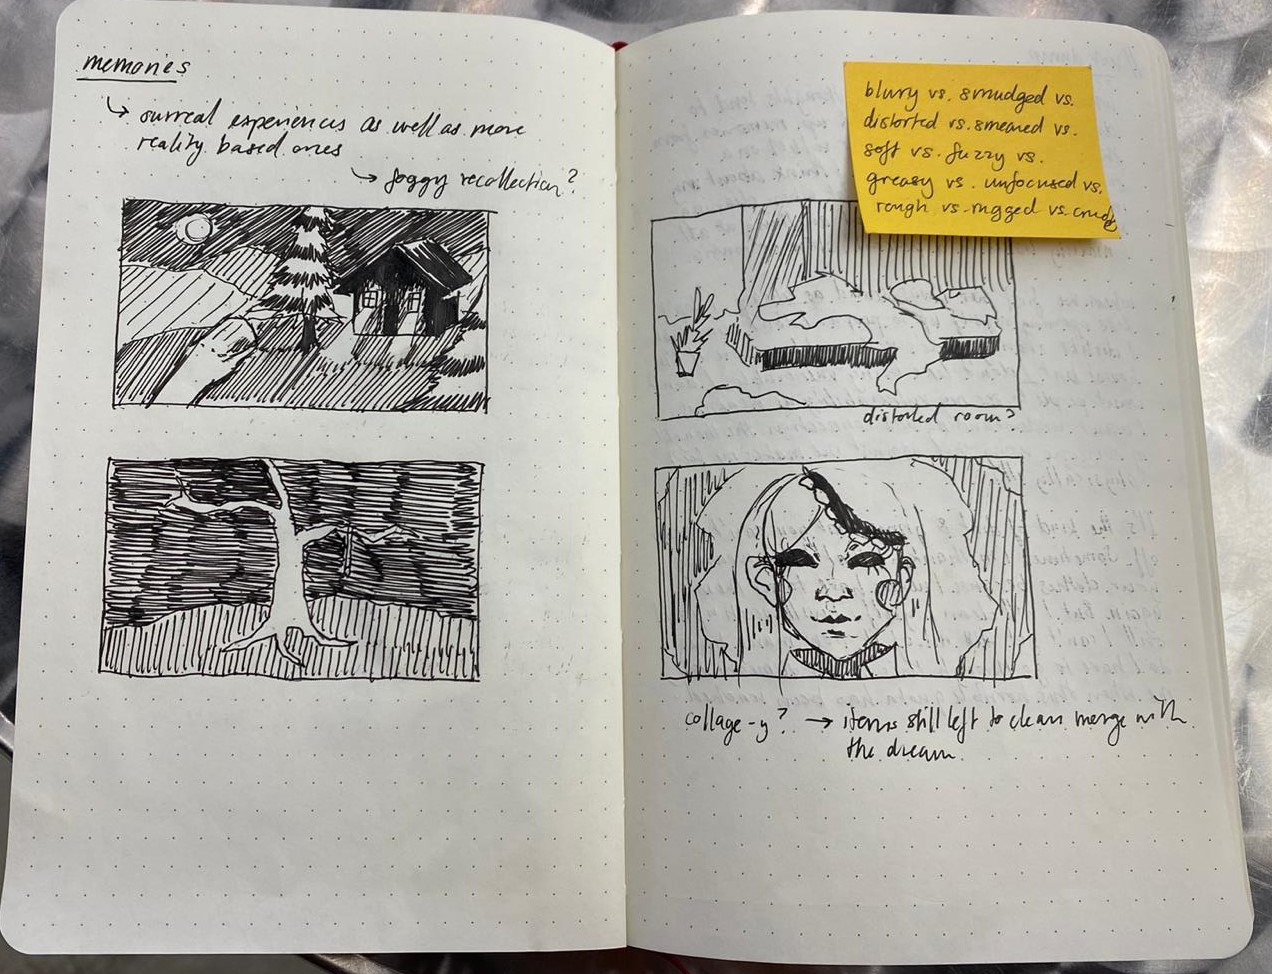 memories
↳ surreal experiences as well as more
reality based ones
↳ foggy recollection?
blurry vs. smudged vs.
distorted vs. smeared vs.
soft vs. fuzzy vs.
greasy vs. unfocused vs.
rough vs. rugged vs. crudy
distorted room?
collage-y? → items still left to clean merge with
the dream